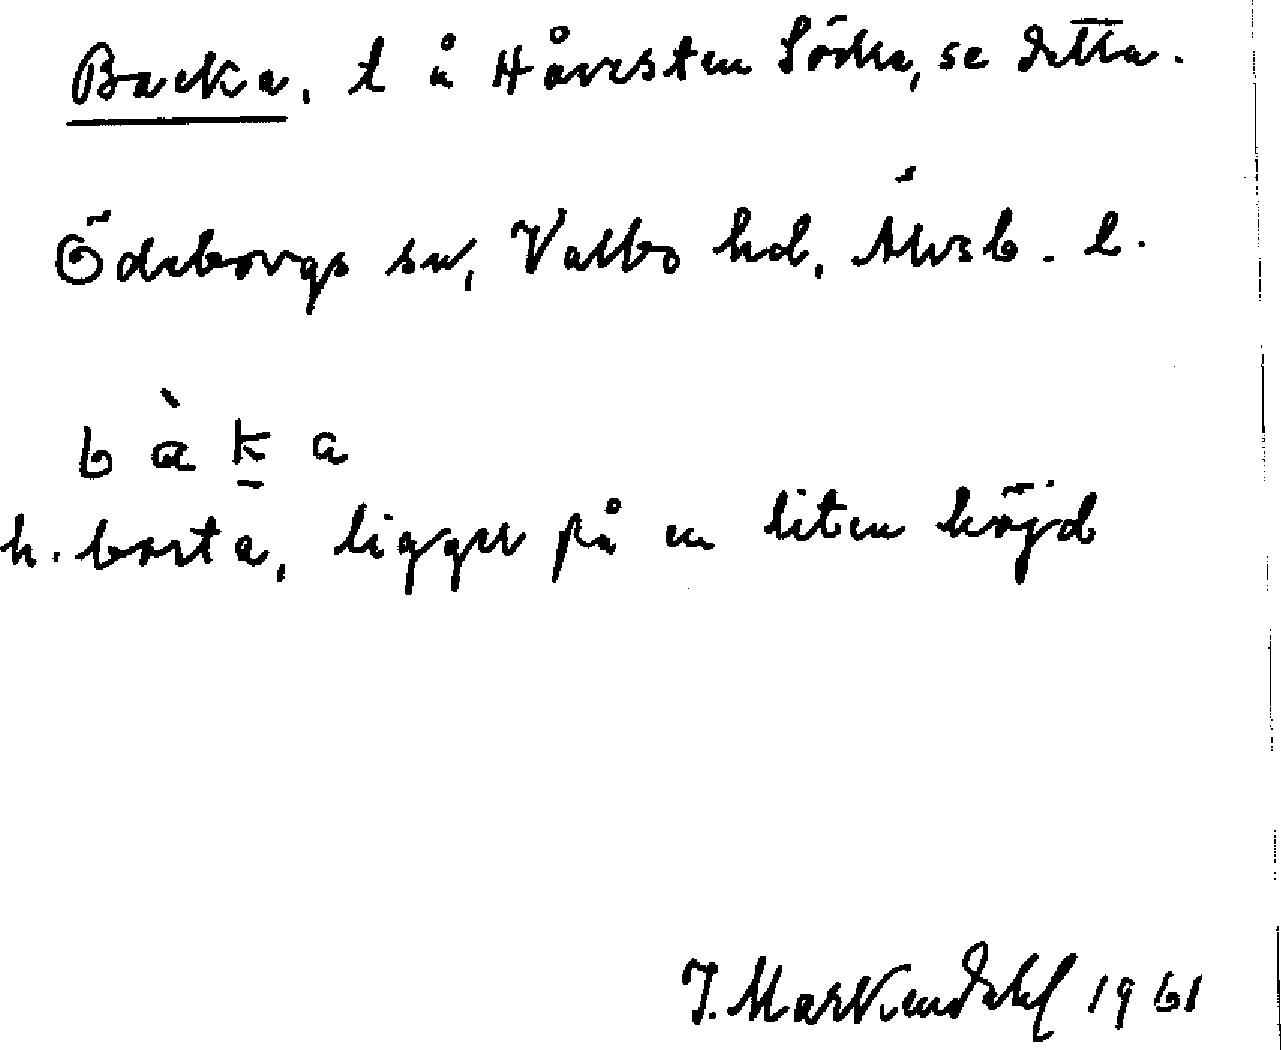 Backa, t å Håvesten Södra, se detta.
Ödeborgs sn, Valbo hd, Älvsb. l.
bàk̲a
h. borta, ligger på en liten höjd
J. Markendahl 1961